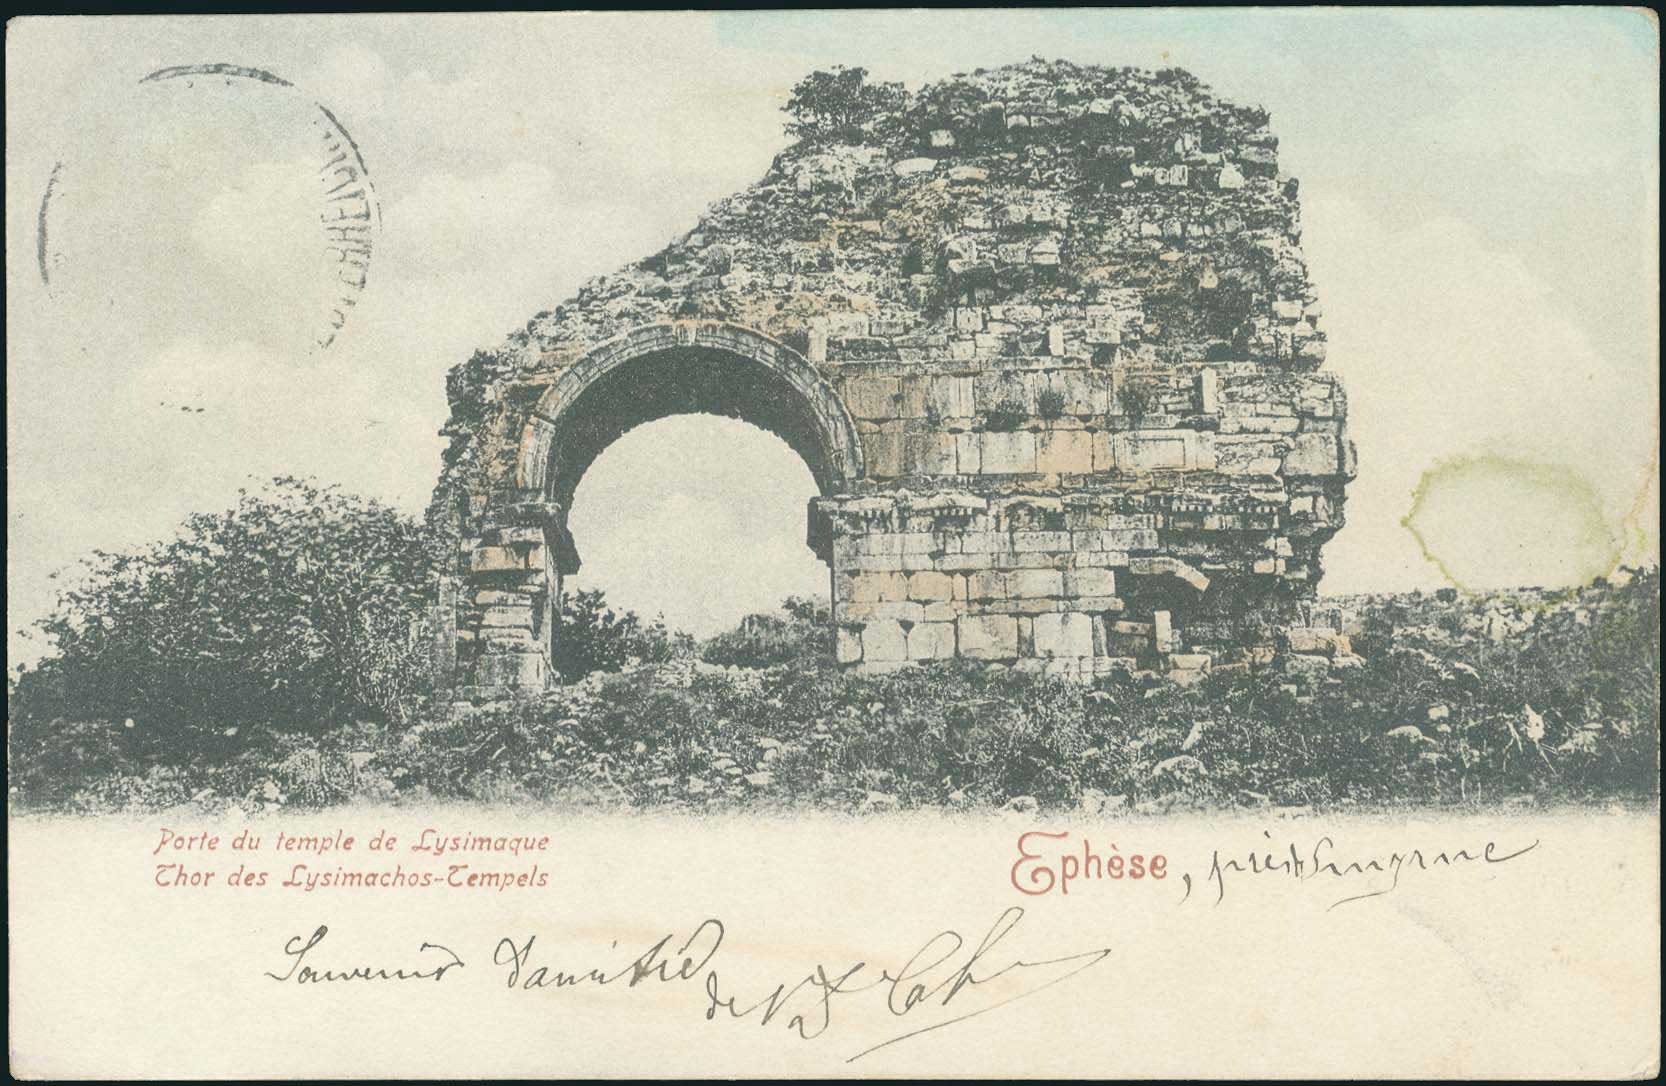 Porte du temple de Lysimaque
Thor des Lysimachos-Tempels
Ephèse, près Smyrne
Souvenir d'amitié
de